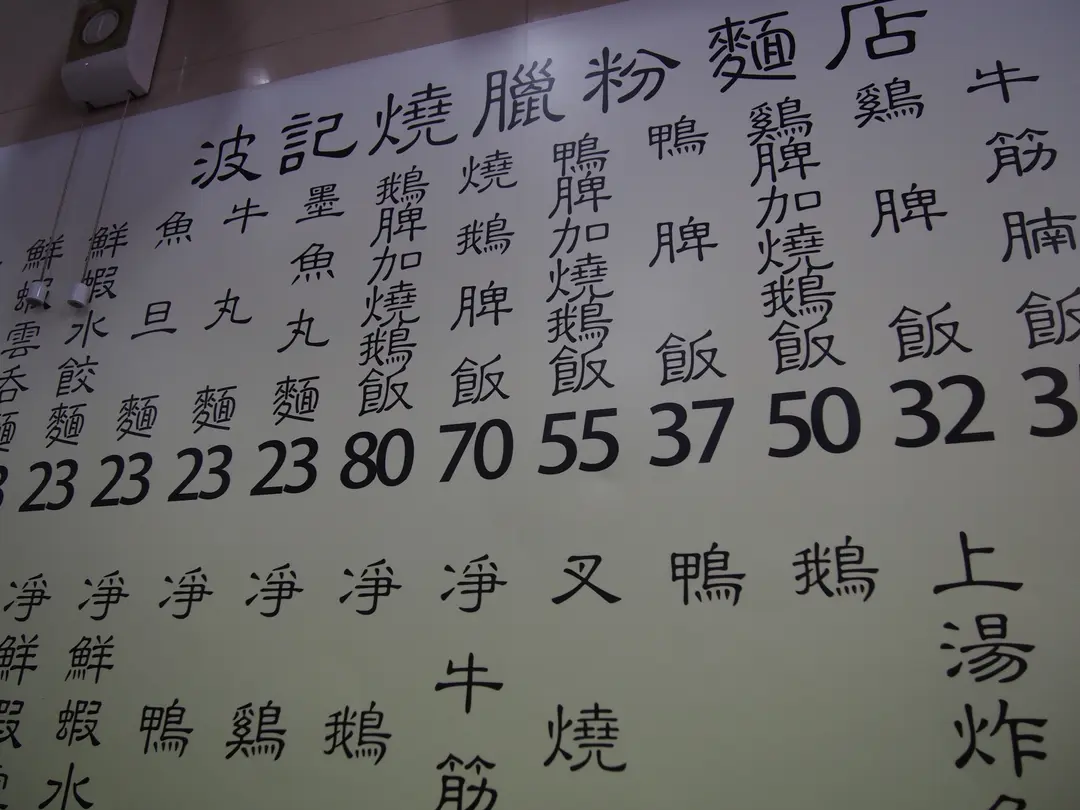 波記燒臘粉麵店
牛筋腩飯
雞脾飯
32
雞脾加燒鵝飯
50
鴨脾飯
37
鴨脾加燒鵝飯
55
燒鵝脾飯
70
鵝脾加燒鵝飯
80
墨魚丸麵
23
牛丸麵
23
魚旦麵
23
鮮蝦水餃麵
23
鮮蝦雲吞麵
上湯炸
鵝
鴨
叉燒
凈牛筋
凈鵝
凈雞
凈鴨
凈鮮蝦水
凈鮮蝦